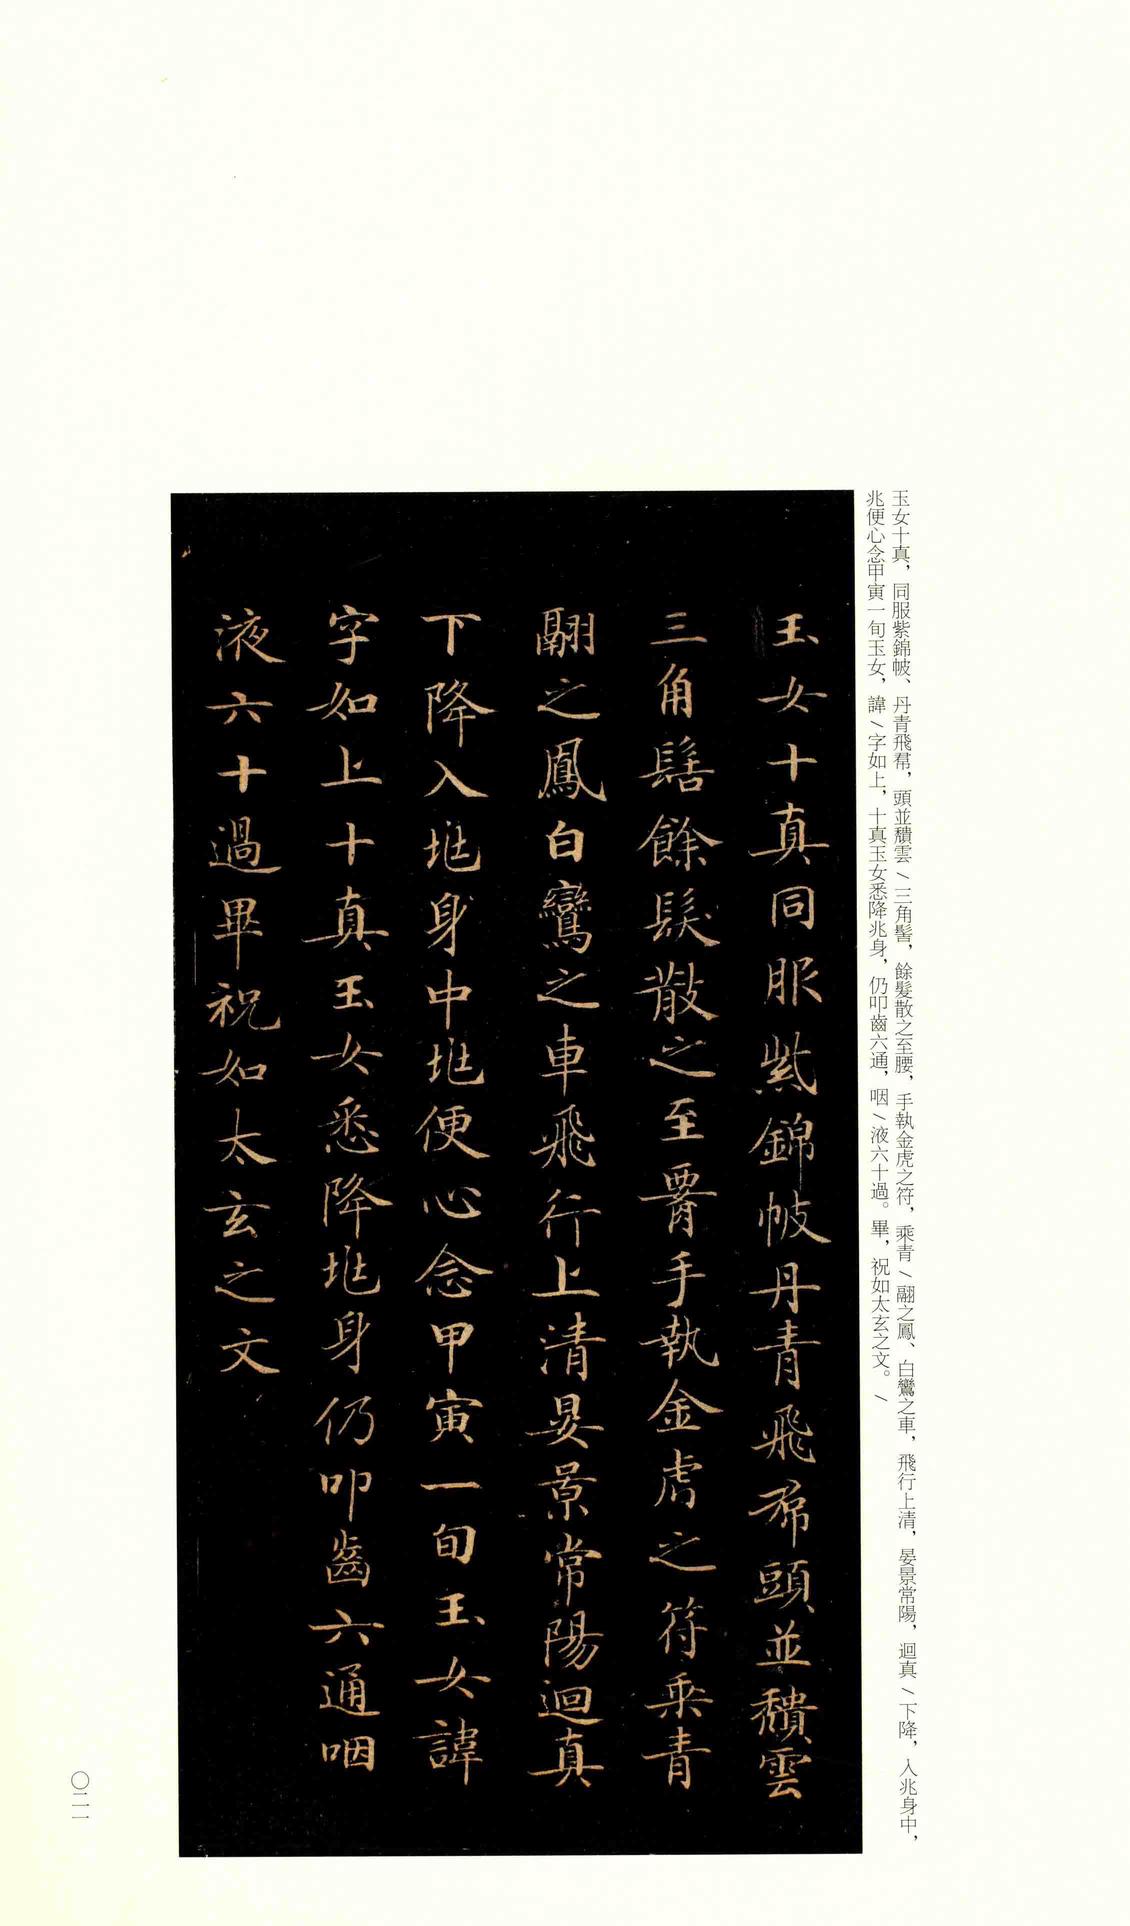 玉女十真，同服紫錦帔、丹青飛帬，頭並穨雲／三角髻，餘髮散之至腰，手執金虎之符，乘青／翮之鳳、白鸞之車，飛行上清，晏景常陽，迴真／下降，入兆身中，
兆便心念甲寅一旬玉女，諱／字如上，十真玉女悉降兆身，仍叩齒六通，咽／液六十過。畢，祝如太玄之文。／
玉女十真同服紫錦帔丹青飛帬頭並穨雲
三角髻餘髮散之至腰手執金虎之符乘青
翮之鳳白鸞之車飛行上清晏景常陽迴真
下降入兆身中兆便心念甲寅一旬玉女諱
字如上十真玉女悉降兆身仍叩齒六通咽
液六十過畢祝如太玄之文
〇二一